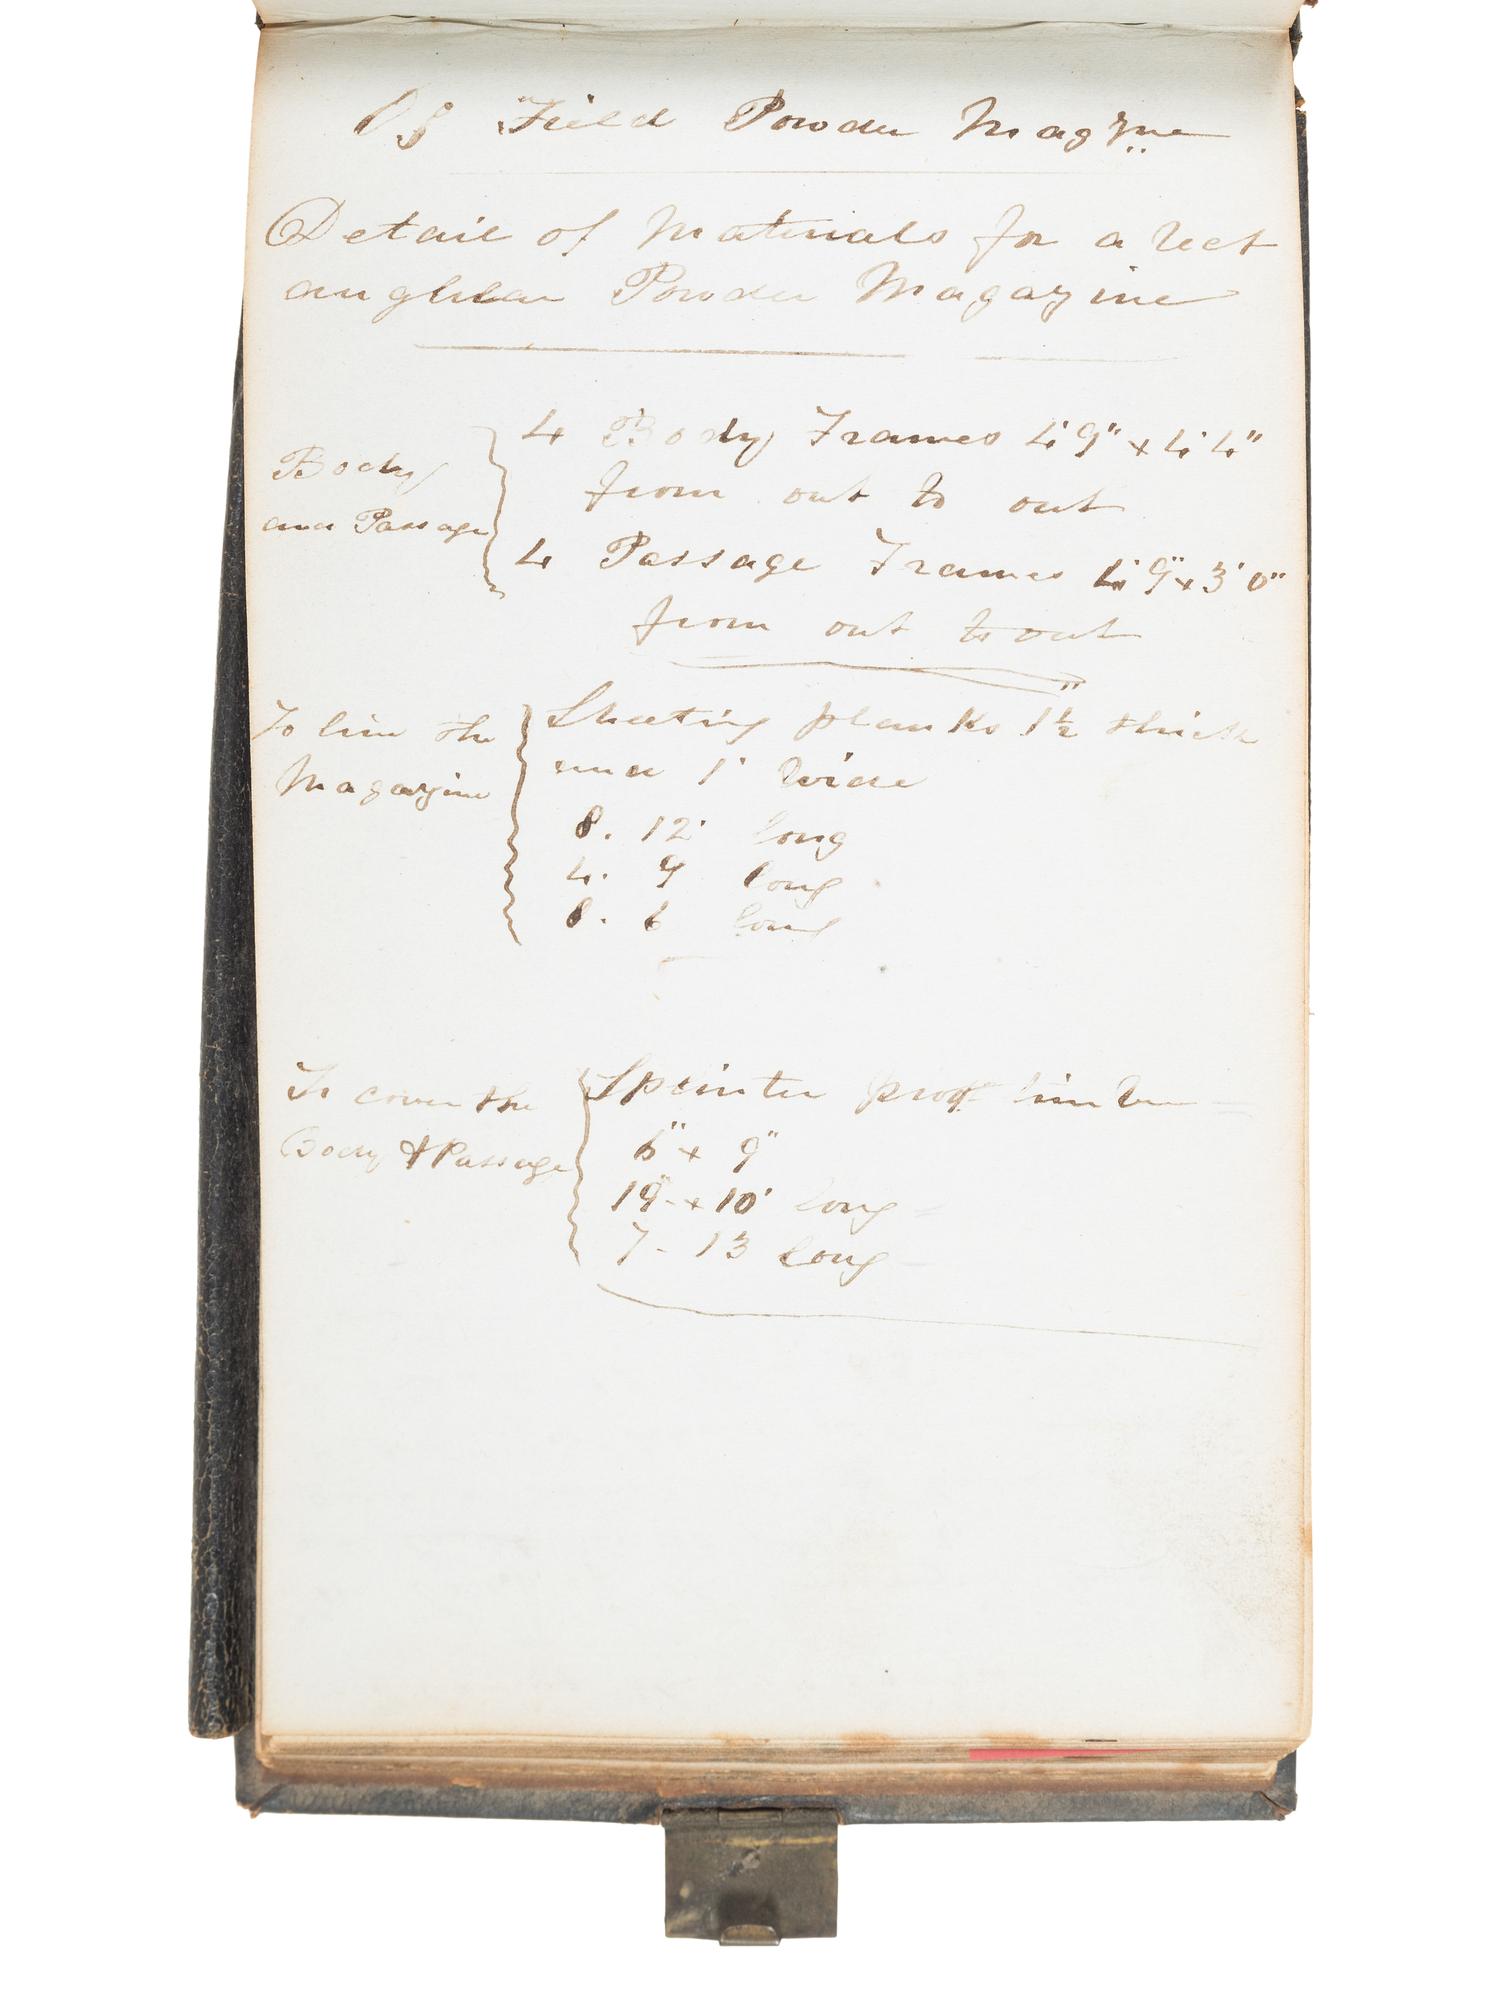 Of Field Powder Magzne
Detail of Materials for a Rect
anglular Powder Magazine
Body
and Passage
4 Body Frames 4' 9" x 4' 4"
from out to out
4 Passage Frames 4' 9" x 3' 0"
from out to out
To line the
Magazine
Sheeting planks 1½" thick
and 1' wide
8. 12' long
4. 9 long
8. 6 long
To cover the
Body & Passage
Splinter proof timber
6" x 9"
19 - x 10' long
7 - 13 long